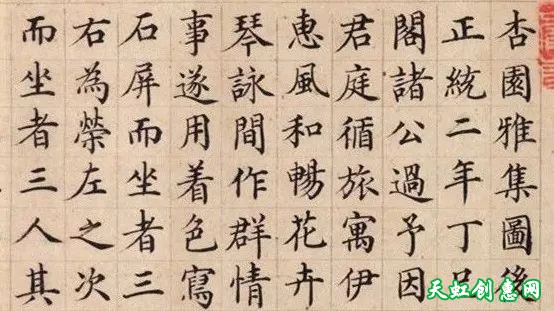 杏園雅集圖後
正統二年丁巳
閣諸公過予因
君庭循旅寓伊
惠風和暢花卉
琴詠間作群情
事遂用着色寫
石屏而坐者三
右為榮左之次
而坐者三人其
天虹创惠网